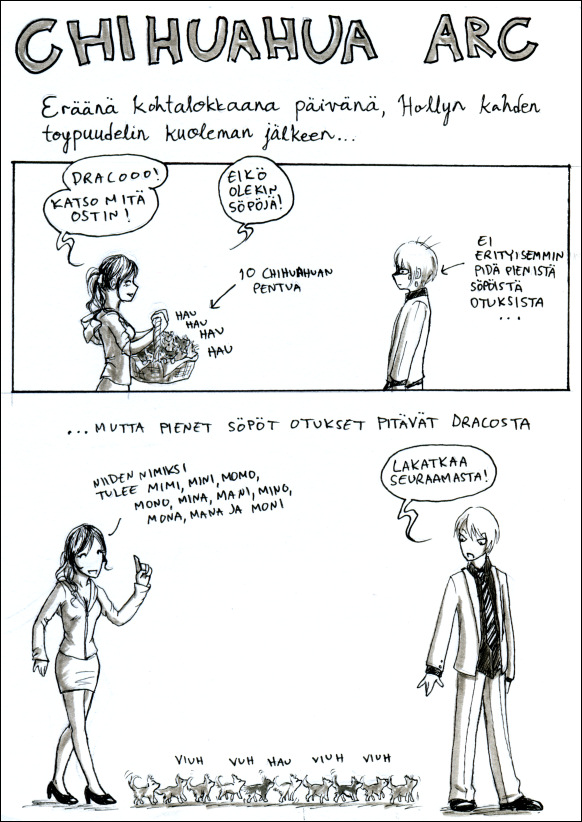 CHIHUAHUA ARC
Eräänä kohtalokkaana päivänä, Hollyn kahden
toypuudelin kuoleman jälkeen...
DRACOOO!
KATSO MITÄ
OSTIN!
EIKÖ
OLEKIN
SÖPÖJÄ!
10 CHIHUAHUAN
PENTUA
HAU
HAU
HAU
HAU
EI
ERITYISEMMIN
PIDÄ PIENISTÄ
SÖPÖISTÄ
OTUKSISTA
...
...MUTTA PIENET SÖPÖT OTUKSET PITÄVÄT DRACOSTA
NIIDEN NIMIKSI
TULEE MIMI, MINI, MOMO,
MONO, MINA, MANI, MINO,
MONA, MANA JA MONI
LAKATKAA
SEURAAMASTA!
VIUH VUH HAU VIUH VIUH